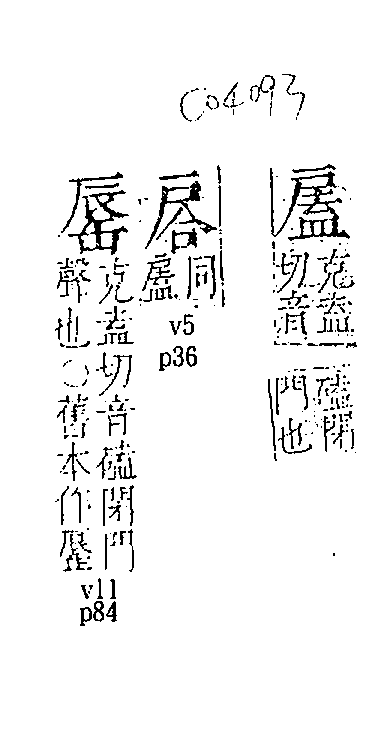 C04093
克盍
切音
磕閉
門也
同
v5
p36
克盖切音磕閉門
聲也○舊本作
v11
p84